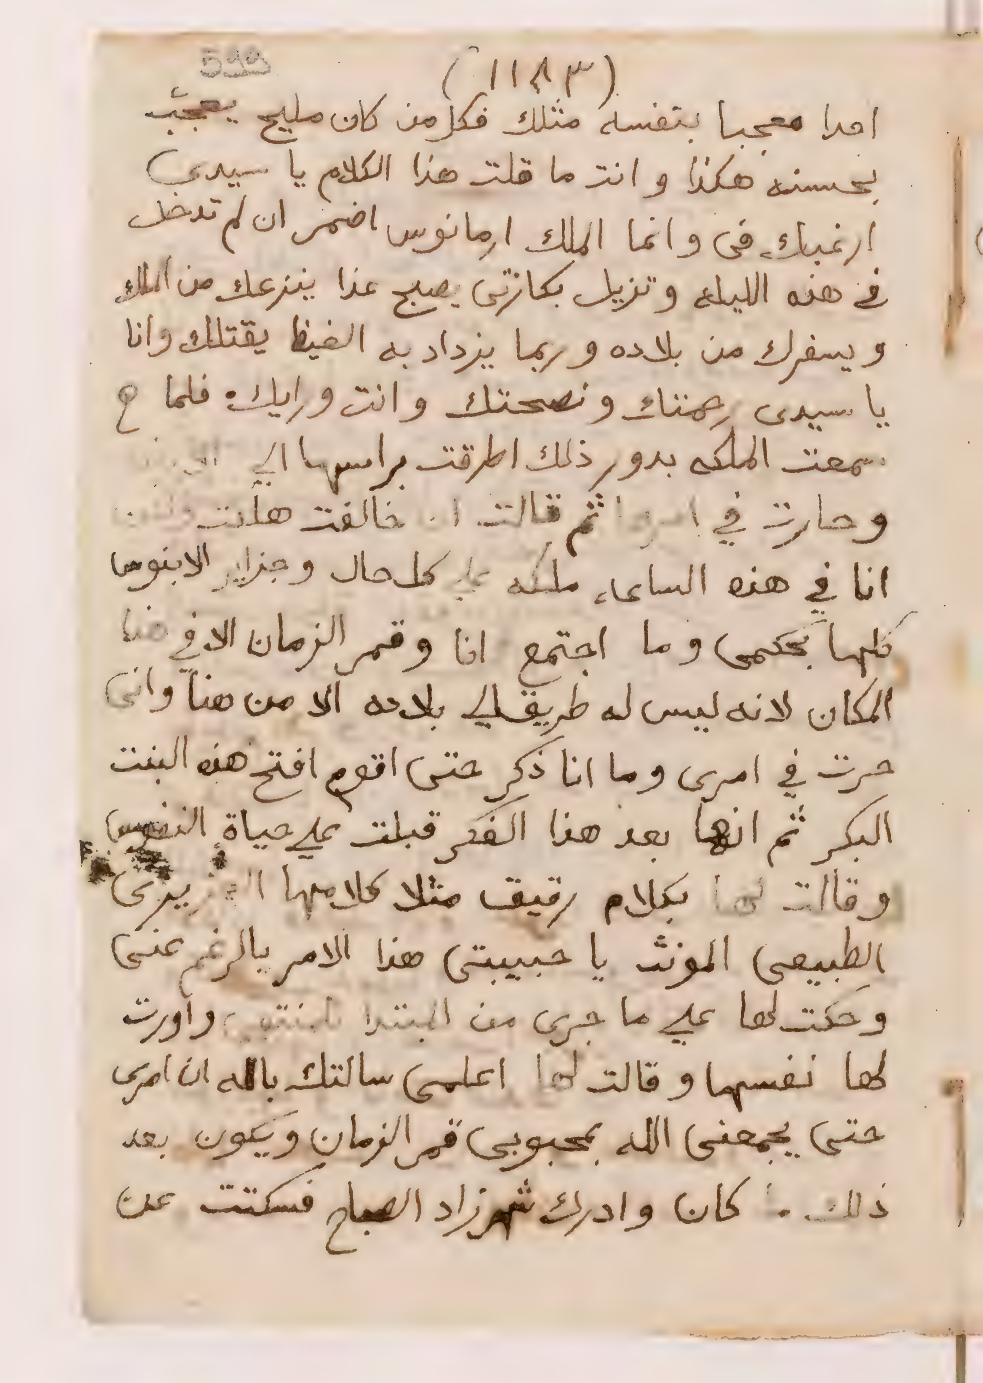 599
(١١٨٣)
احدا معجبا بنفسه مثلك فكل من كان مليح يعجب
بحسنه هكذا وانت ما قلت هذا الكلام يا سيدي
ارغبك في وانما الملك ارمانوس اضمر ان لم تدخل
في هذه الليله وتزيل بكارتي يصبح غدا ينزعك من الملك
ويسفرك من بلاده وربما يزداد به الغيظ يقتلك وانا
يا سيدى رحمتك ونصحتك وانت ورايك فلما
سمعت الملكه بدور ذلك اطرقت براسها الي
وحارت في امرها ثم قالت ان خالفت هلكت
انا في هذه الساعه ملكه علي كل حال وجزاير الابنوس
كلها بحكمى وما اجتمع انا وقمر الزمان الا في هذا
المكان لانه ليس له طريق الي بلاده الا من هنا وانى
حرت في امرى وما انا ذكر حتى اقوم افتح هذه البنت
البكر ثم انها بعد هذا الفكر قبلت علي حياة النفوس
وقالت لها بكلام رقيق مثلا كلامها
الطبيعى المونث يا حبيبتى هذا الامر بالرغم عنى
وحكت لها علي ما جرى من المبتدا للمنتهى واورت
لها نفسها وقالت لها اعلمى سالتك بالله ان امرى
حتى يجمعنى الله بمحبوبى قمر الزمان ويكون بعد
ذلك ما كان وادرك شهرزاد الصباح فسكتت عن